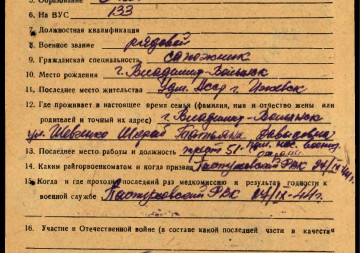 5. Образование
6. На ВУС 133
7. Должностная квалификация
8. Военное звание рядовой
9. Гражданская специальность сапожник
10. Место рождения г. Владимир-Волынск
11. Последнее место жительства Удм. Асср г. Ижевск
12. Где проживает в настоящее время семья (фамилия, имя и отчество жены или
родителей и точный их адрес) г. Владимир-Волынск
ул. Шевченко Татьяна Давыдовна
13. Последнее место работы и должность трест 51
14. Каким райгорвоенкоматом и когда призван Пастуховский РВК 24/IX 41г.
15. Когда и где проходил последний раз медкомиссию и результат годности к
военной службе Пастуховский РВК 24/IX-41г.
16. Участие в Отечественной войне (в составе какой последней части и в качестве